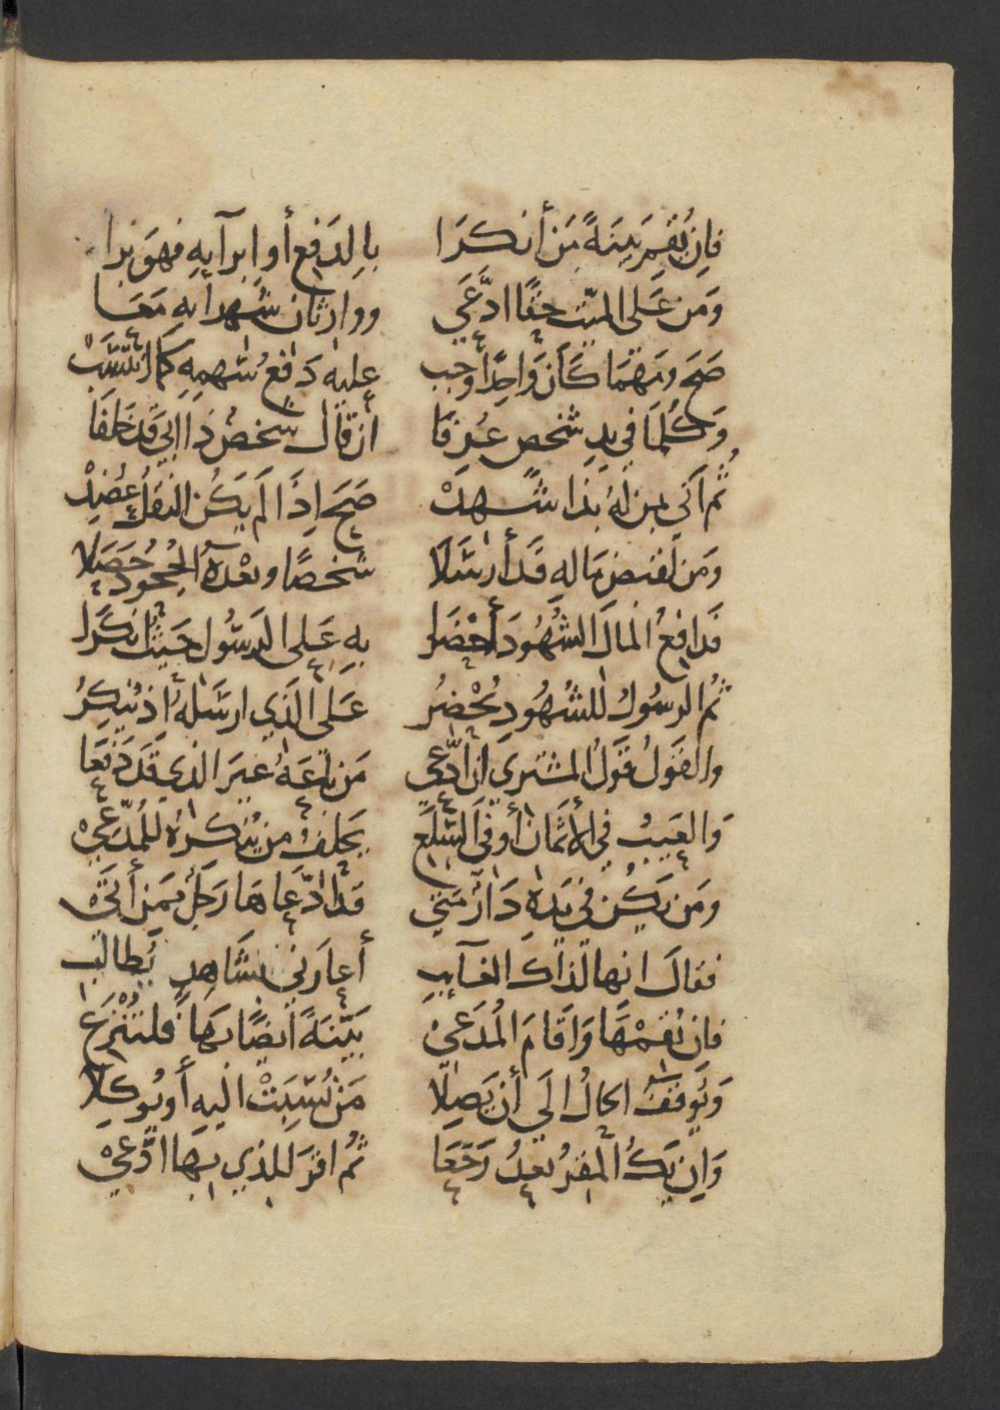 فإن يُقِم بينةً من أنكرا بالدفع أو ابرآيه فهو برا
ومن على الميت حقًا ادّعي ووارثان شهدا به معا
صح ومهما كان واحدًا وجب عليه دفع سهمه كما انتسب
وكلما في يد شخص عرفا ان قال شخص ذا ابي قد خلفا
ثم اتي بمن له بذا شهد صح إذا لم يكن النقل عضد
ومن لقبض ماله قد أرسلا شخصًا وبعده الجحود حصلا
فدافع المال الشهود أحضرا به على الرسول حيث انكرا
ثم الرسول للشهود يُحْضِرُ على الذي ارسله اذ ينكر
والقول قول المشتري ان ادّعي من باعه غير الذي قد دفعا
والعيبُ في الأثمان أو في السلع يحلف من ينكره للمدّعيْ
ومن يكن في يده دار متي قد ادّعاها رجل ممن أتيْ
فقال انها لذاك الغآيب أعارني بشاهدٍ يُطالب
فان يُقمْها واقام المدعيْ بيّنةً ايضًا بها فلتُنْزَع
ويوقف الحال الي أن يصلا من نُسِبَتْ اليه أو يوكلا
وان يك المقر بعدُ رجعا ثم اقر للذي بها ادّعيْ